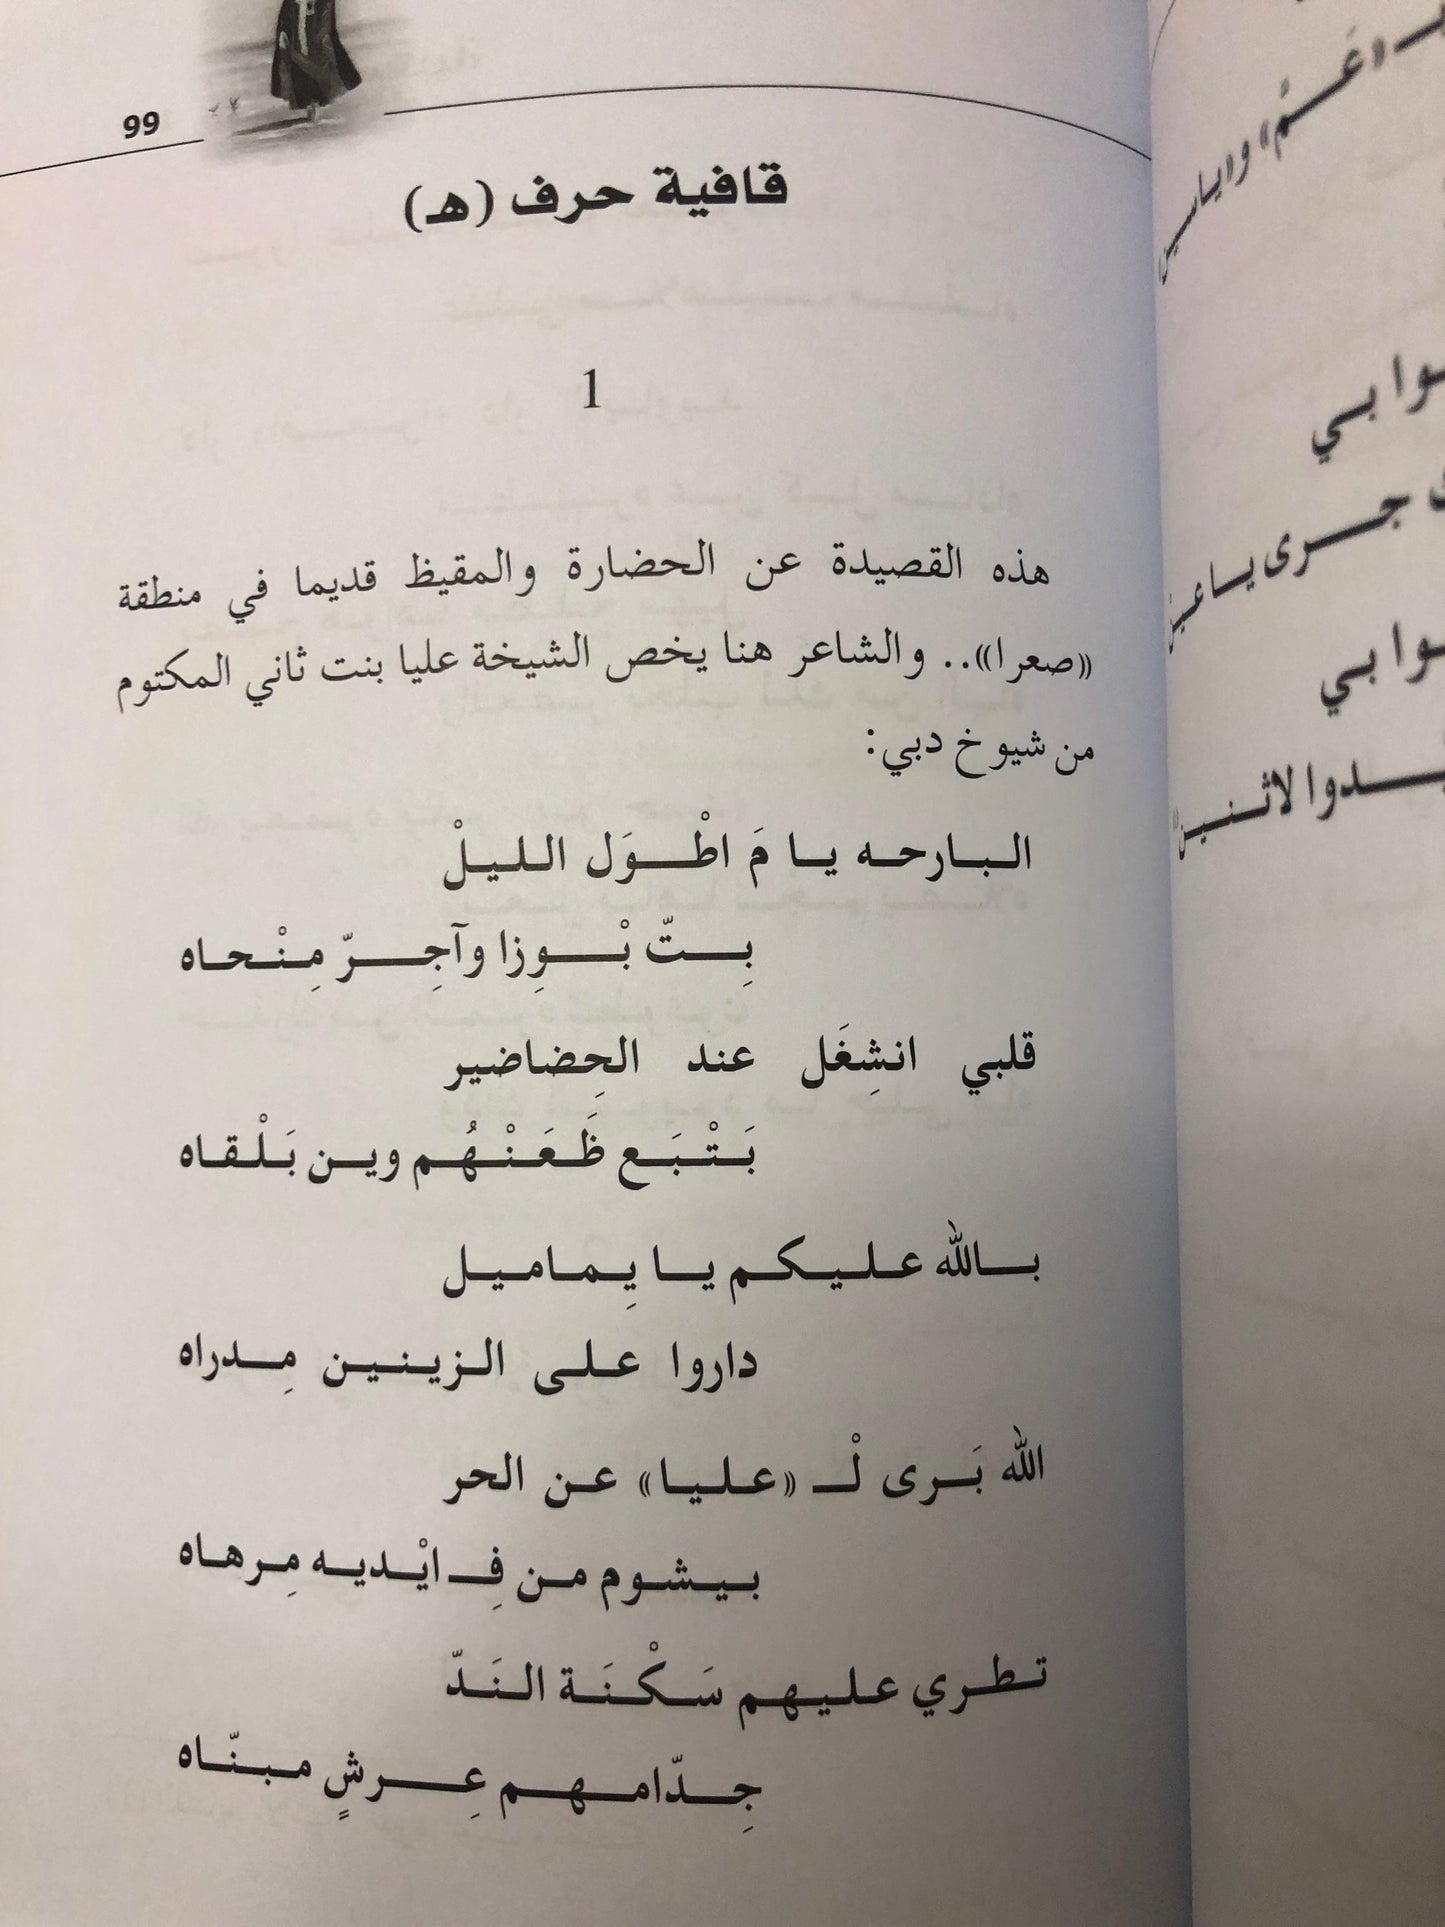 99
قافية حرف (هـ)
1
هذه القصيدة عن الحضارة والمقيظ قديما في منطقة
«صعرا».. والشاعر هنا يخص الشيخة عليا بنت ثاني المكتوم
من شيوخ دبي:
البارحه يا مَ اطْوَل الليلْ
بِتّ بْوِزا وآجِرّ مِنْحاه
قلبي انشِغَل عند الحِضاضير
بَتْبَع ظَعَنْهُم وين بَلْقاه
بالله عليكم يا يِماميل
داروا على الزينين مِدراه
الله بَرى لْـ «عليا» عن الحر
بيشوم من فِـ ايْديه مِرهاه
تطري عليهم سَكْنَة النَدّ
جِدّامهم عِرشٍ مبنّاه
«عَمّ» و«ياسين
وا بي
جرى يا عين
وا بي
دوا لاثنين